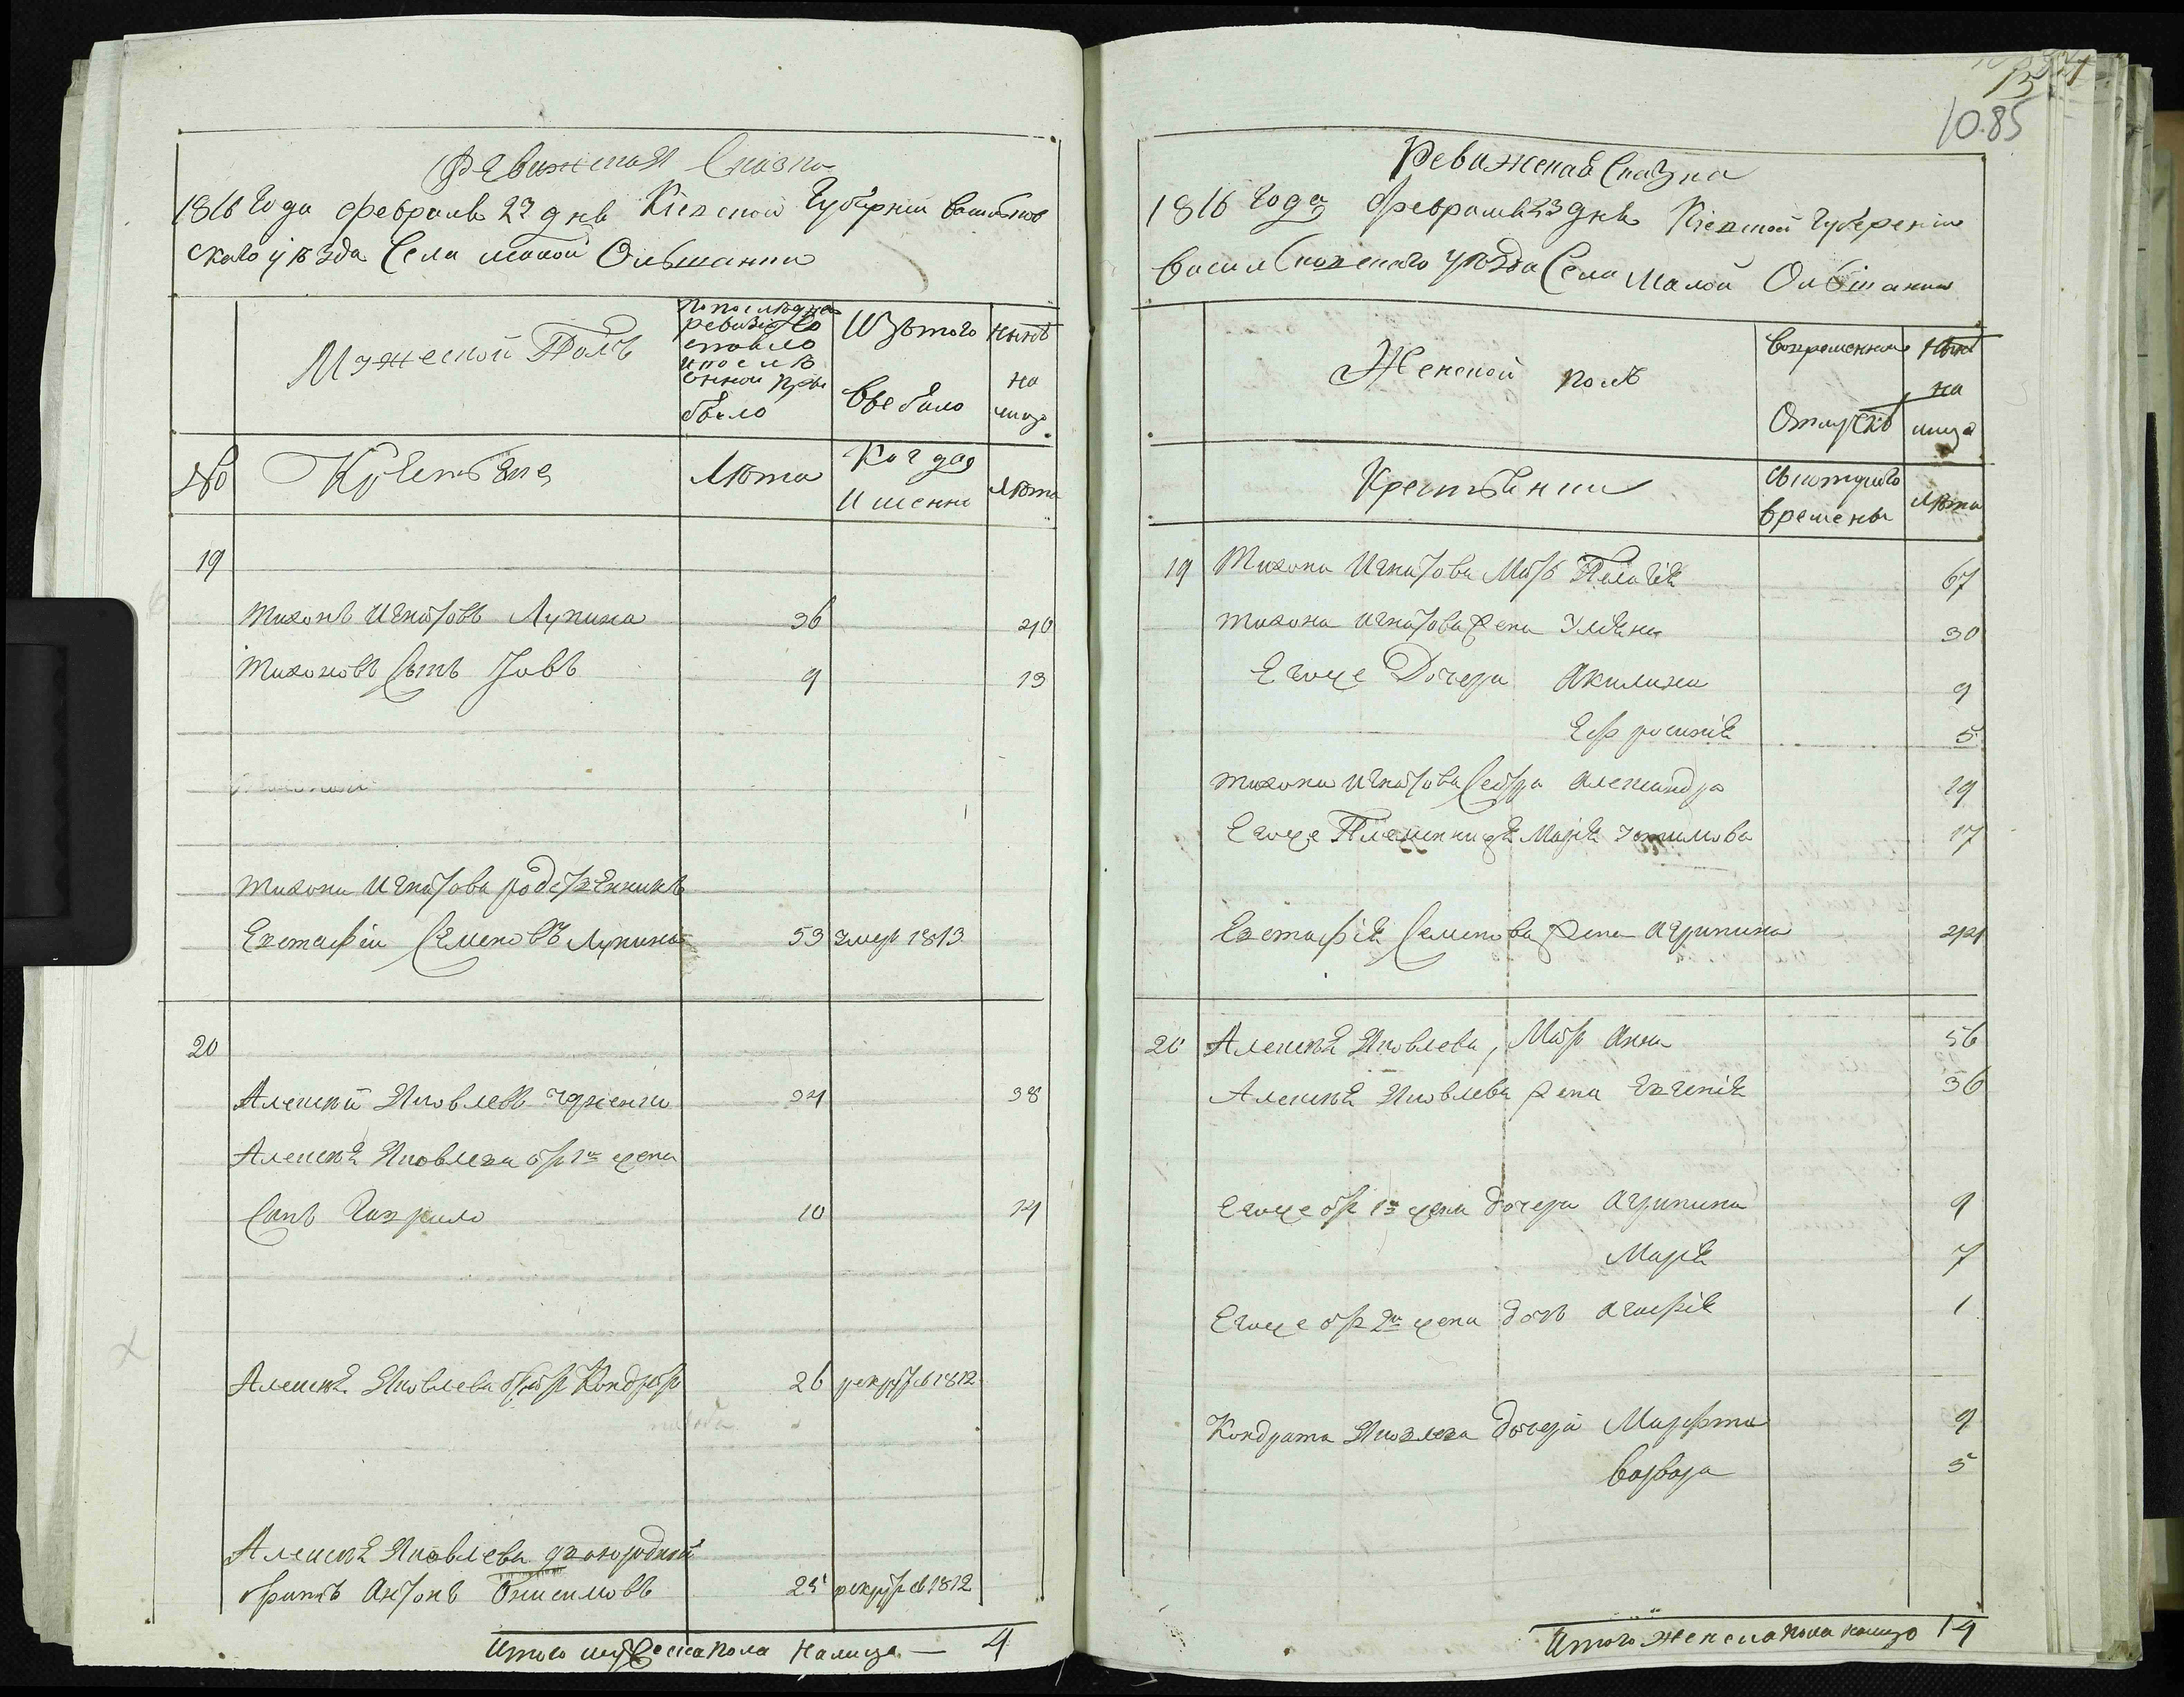 Ревижская Сказка
1816 Года февраля 23 дня Кіевской Губерніи василков
скаго уѣзда Села малой Ольшанки
Мужеской Полъ
По последнеи
ревизіи Со
стояло
и после
оннои при
было
Изътого
выбыло
нынѣ
на
лицо
№
Крестьяне
Лѣта
Когда
Именно
Лѣта
19
Тихонъ Игнатовъ Лупина 36 40
Тихоновъ Сынъ Іовъ 9 13
Тихона Игнатова родственникъ
Евстафіи Семеновъ Лупина 53 умер 1813
20
Алексѣй Яковлевъ 34 38
Алексѣя Яковлева от 1й жены
Сынъ Гаврило 10 14
Алексѣя Яковлева брат Кондрат 26 рекрут в 1812
Алексѣя Яковлева двоюродной
братъ Антонъ Онисимовъ 25 рекрут в 1812
Итого мужеска пола Налицо — 4
15
1085
Ревижская Сказка
1816 Года Февраля 23 дня Кіевской Губерніи
Василковскаго уѣзда Села Малой Ольшанки
Женской полъ
Вовременной
Отлучкѣ
Нынѣ
на
лицо
Крестьянки
Съкотораго
времены
Лѣта
19 Тихона Игнатова Мать Пелагея 67
Тихона Игнатова жена Уляна 30
Егоже Дочери Акилина 9
Ефросинія 5
Тихона Игнатова Сестра Александра 19
Егоже Племянница Марія 17
Евстафія Семенова жена Агрипина 44
20 Алексѣя Яковлева, Мать Анна 56
Алексѣя Яковлева жена Евгенія 36
Егоже от 1й жены дочери Агрипина 9
Марія 7
Егоже от 2й жены дочь Агафія 1
Кондрата Яковлева дочери Марфта 9
Варвара 5
Итого женска пола налицо 14